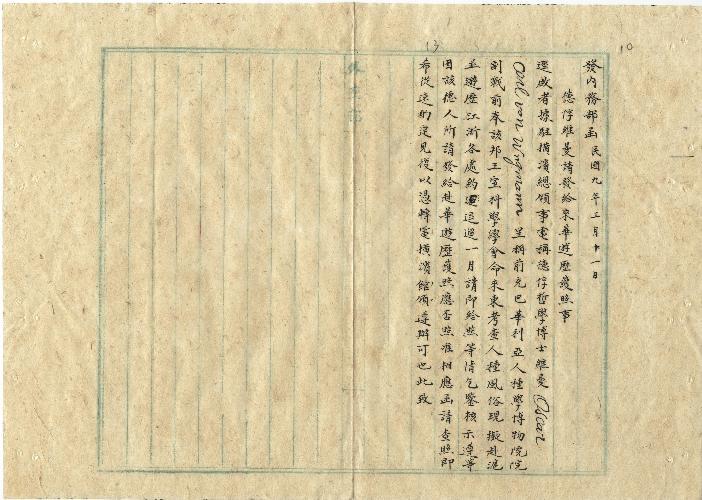 10
13
發內務部函 民國九年三月十一日
德俘維曼請發給來華遊歷護照事
逕啟者據駐橫濱總領事電稱德俘哲學博士維曼 Oscar
Carl von Wegmann 呈稱前充巴華利亞人種學博物院院
副戰前奉該邦王室科學學會命來東考查人種風俗現擬赴滬
並遊歷江浙各處約 逗遛一月請即給照等情乞鑒核示遵等
因該德人所請發給赴華遊歷護照應否照准相應函請查照即
希從速酌定見復以憑轉電橫濱館領遵辦可也此致